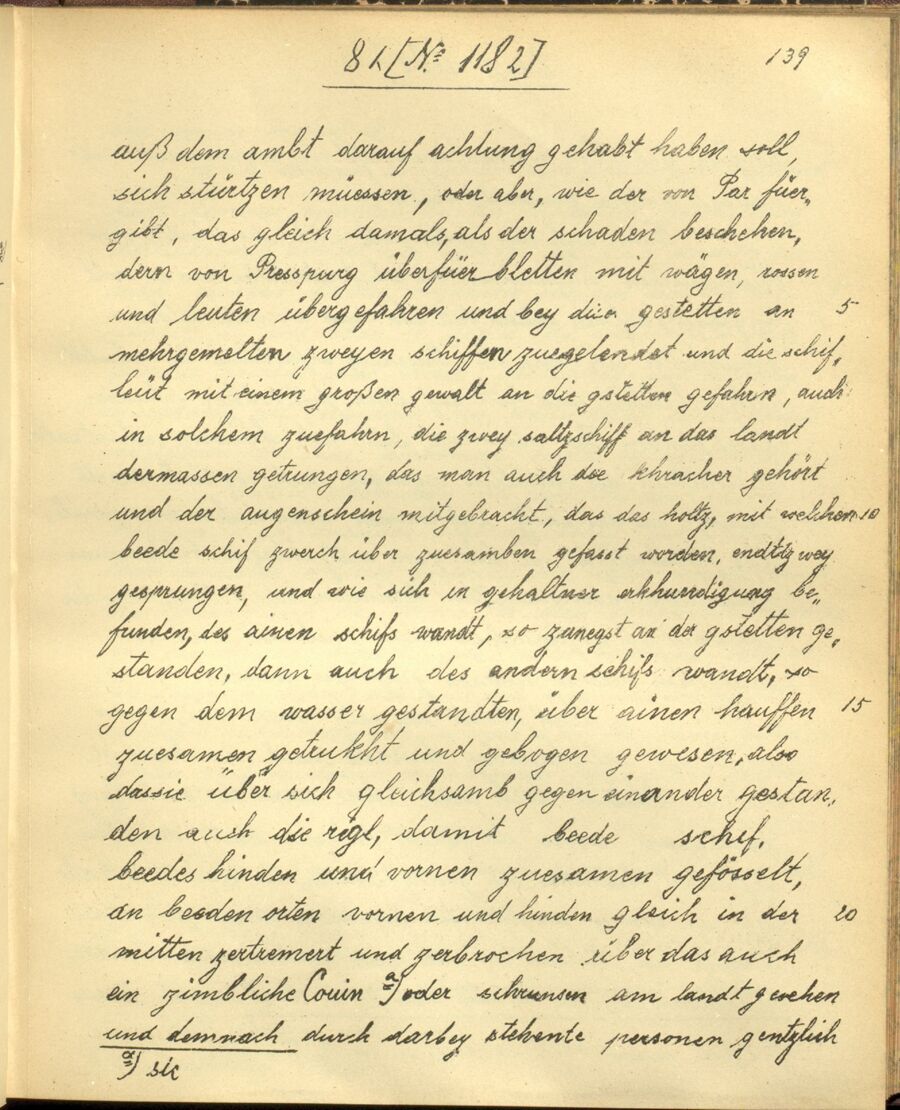 81 [Nº 1182]
139
auß dem ambt darauf achtung gehabt haben soll,
sich stürtzen müessen, oder aber, wie der von Par füer„
gibt, das gleich damals, als der schaden beschehen,
dern von Presspurg überfüer bletten mit wägen, rossen
und leuten übergefahren und bey diser gestetten an 5
mehrgemelten zweyen schiffen zuegelendet und die schif„
leüt mit einem großen gewalt an die gstetten gefahrn, auch
in solchem zuefahrn, die zwey saltzschiff an das landt
dermassen getrungen, das man auch die khracher gehört
und der augenschein mitgebracht, das das holtz, mit welchem 10
beede schif zwerch über zuesamben gefasst worden, endtzwey
gesprungen, und wie sich in gehaltner erkhundigung be„
funden, des ainen schifs wandt, so zunegst an der gstetten ge„
standen, dann auch des andern schifs wandt, so
gegen dem wasser gestandten, über ainen hauffen 15
zuesamen getrukht und gebogen gewesen, also
das sie über sich gleichsamb gegen einander gestan„
den auch die rigl, damit beede schif,
beedes hinden und vornen zuesamen gefösselt,
an beeden orten vornen und hinden gleich in der 20
mitten zertremert und zerbrochen über das auch
ein zimbliche Couin a) oder schrunsen am landt gesehen
und demnach durch darbey stehente personen gentzlich
a) sic